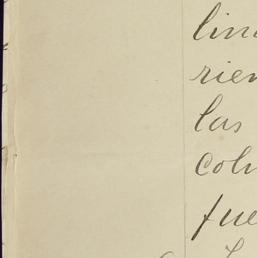 lin
rien
las
coln
fue